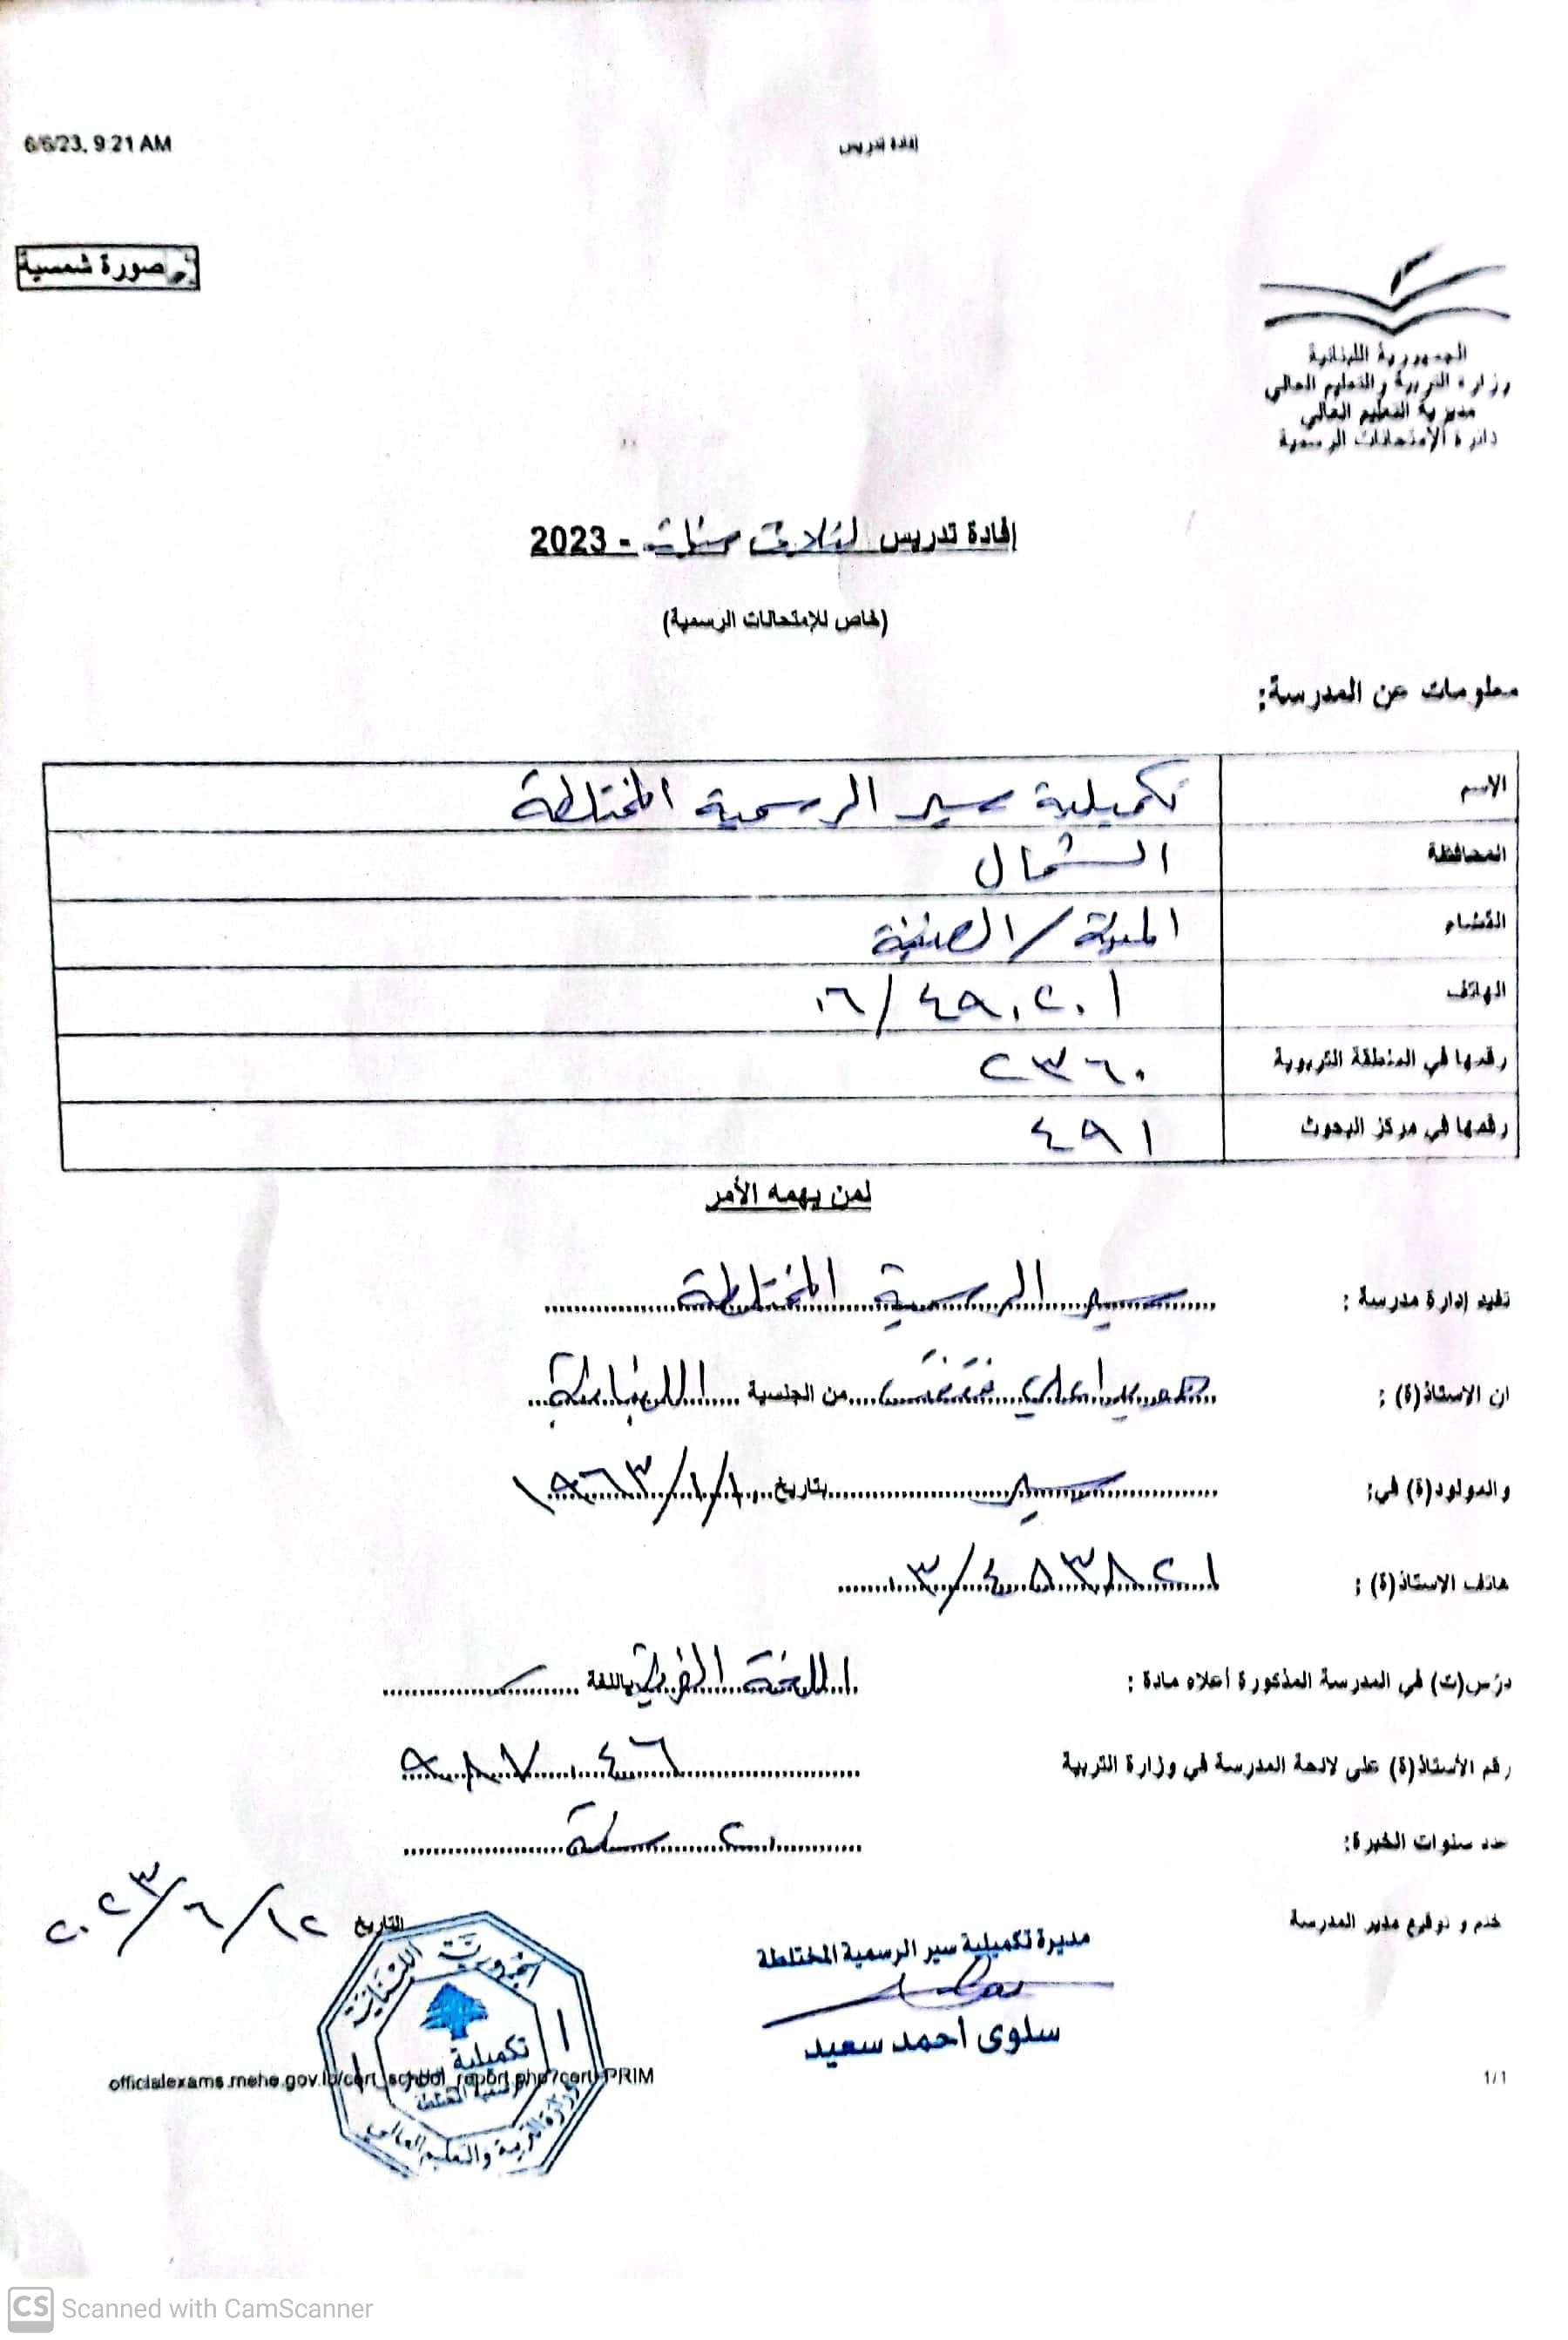 6/6/23, 9:21 AM
إفادة تدريس
صورة شمسية
الجمهورية اللبنانية
وزارة التربية والتعليم العالي
مديرية التعليم العالي
دائرة الإمتحانات الرسمية
إفادة تدريس لثلاث سنوات - 2023
(خاص للإمتحانات الرسمية)
معلومات عن المدرسة:
الاسم تكميلية سير الرسمية المختلطة
المحافظة الشمال
القضاء المنية / الضنية
الهاتف ٠٦/٤٩٠٢٠١
رقمها في المنطقة التربوية ٢٣٦٠
رقمها في مركز البحوث ٤٩١
لمن يهمه الأمر
تفيد إدارة مدرسة : سير الرسمية المختلطة
ان الاستاذ(ة) : علي من الجنسية اللبنانية
والمولود(ة) في: سير بتاريخ ١٩٦٣/١/١٠
هاتف الاستاذ(ة) : ٠٣/٤٥٣٨٢١
درّس(ت) في المدرسة المذكورة أعلاه مادة : اللغة باللغة
رقم الأستاذ(ة) على لائحة المدرسة في وزارة التربية ٩٨٧٠٤٦
عدد سنوات الخبرة: ٢٠ سنة
ختم و توقيع مدير المدرسة
التاريخ ٢٠٢٣/٦/١٢
مديرة تكميلية سير الرسمية المختلطة
سلوى احمد سعيد
الجمهورية اللبنانية
تكميلية سير
الرسمية المختلطة
وزارة التربية والتعليم العالي
officialexams.mehe.gov.lb/cert_school_report.php?cert=PRIM
1/1
CS Scanned with CamScanner